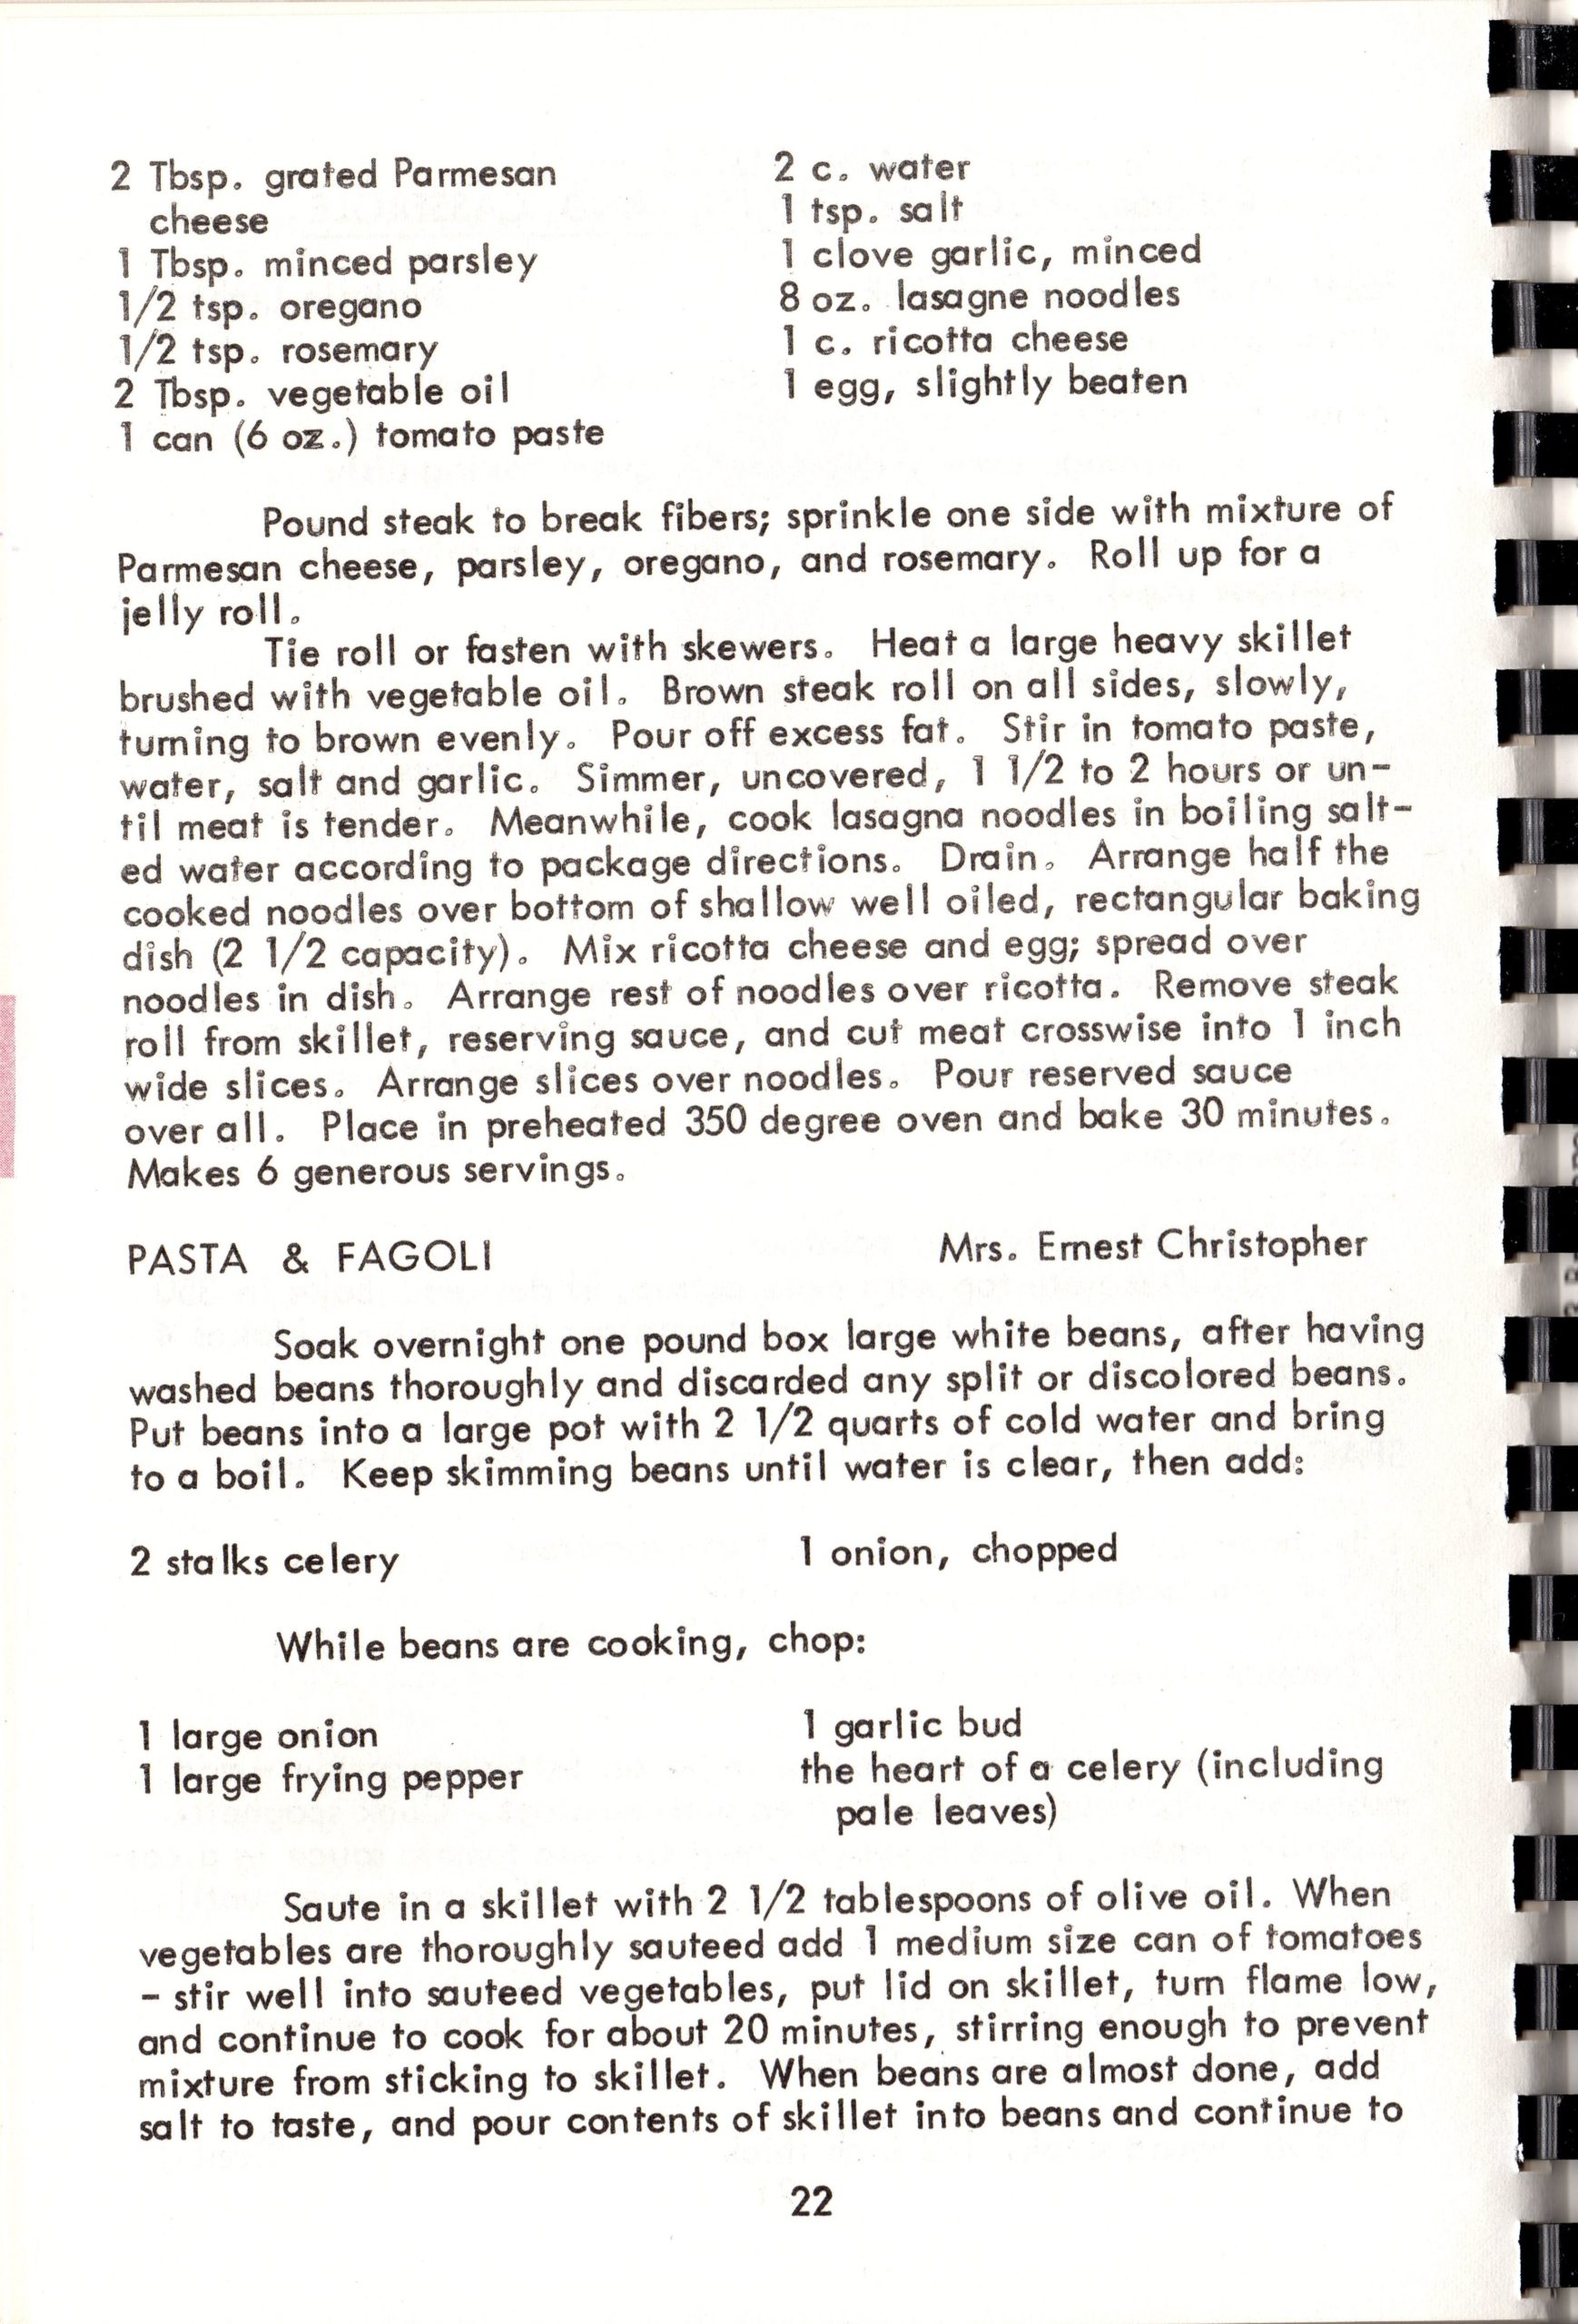 2 Tbsp. grated Parmesan
cheese
1 Tbsp. minced parsley
1/2 tsp. oregano
1/2 tsp. rosemary
2 Tbsp. vegetable oil
1 can (6 oz.) tomato paste
2 c. water
1 tsp. salt
1 clove garlic, minced
8 oz. lasagne noodles
1 c. ricotta cheese
1 egg, slightly beaten
Pound steak to break fibers; sprinkle one side with mixture of
Parmesan cheese, parsley, oregano, and rosemary. Roll up for a
jelly roll.
Tie roll or fasten with skewers. Heat a large heavy skillet
brushed with vegetable oil. Brown steak roll on all sides, slowly,
turning to brown evenly. Pour off excess fat. Stir in tomato paste,
water, salt and garlic. Simmer, uncovered, 1 1/2 to 2 hours or un-
til meat is tender. Meanwhile, cook lasagna noodles in boiling salt-
ed water according to package directions. Drain. Arrange half the
cooked noodles over bottom of shallow well oiled, rectangular baking
dish (2 1/2 capacity). Mix ricotta cheese and egg; spread over
noodles in dish. Arrange rest of noodles over ricotta. Remove steak
roll from skillet, reserving sauce, and cut meat crosswise into 1 inch
wide slices. Arrange slices over noodles. Pour reserved sauce
over all. Place in preheated 350 degree oven and bake 30 minutes.
Makes 6 generous servings.
PASTA & FAGOLI Mrs. Ernest Christopher
Soak overnight one pound box large white beans, after having
washed beans thoroughly and discarded any split or discolored beans.
Put beans into a large pot with 2 1/2 quarts of cold water and bring
to a boil. Keep skimming beans until water is clear, then add:
2 stalks celery 1 onion, chopped
While beans are cooking, chop:
1 large onion
1 large frying pepper
1 garlic bud
the heart of a celery (including
pale leaves)
Saute in a skillet with 2 1/2 tablespoons of olive oil. When
vegetables are thoroughly sauteed add 1 medium size can of tomatoes
- stir well into sauteed vegetables, put lid on skillet, turn flame low,
and continue to cook for about 20 minutes, stirring enough to prevent
mixture from sticking to skillet. When beans are almost done, add
salt to taste, and pour contents of skillet into beans and continue to
22